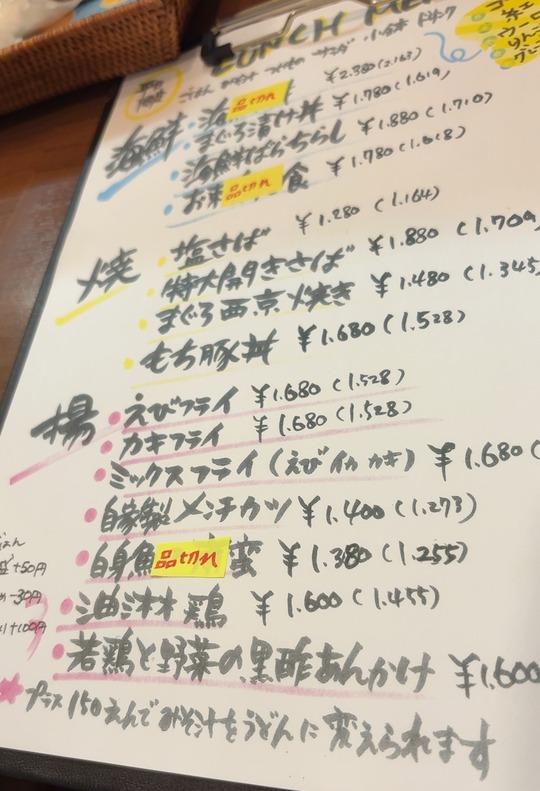 LUNCH ME
ごはん みそ汁 つけもの サラダ 小鉢 ドリンク
海鮮
・海 品切れ ¥2.380(2.163)
・まぐろ漬け丼 ¥1.780(1.619)
・海鮮ばらちらし ¥1.880(1.710)
・お 品切れ 食 ¥1.780(1.618)
焼
・塩さば ¥1.280(1.164)
・特大開きさば ¥1.880(1.709
・まぐろ西京焼き ¥1.480(1.345)
・もち豚丼 ¥1.680(1.528)
揚
・えびフライ ¥1.680(1.528)
・カキフライ ¥1.680(1.528)
・ミックスフライ(えび イカ カキ) ¥1.680(
・自家製メンチカツ ¥1.400(1.273)
・白身魚 品切れ 蛮 ¥1.380(1.255)
・油淋鶏 ¥1.600(1.455)
・若鶏と野菜の黒酢あんかけ ¥1.600
ごはん
盛+50円
-30円
+100円
プラス150えんでみそ汁をうどんに変えられます